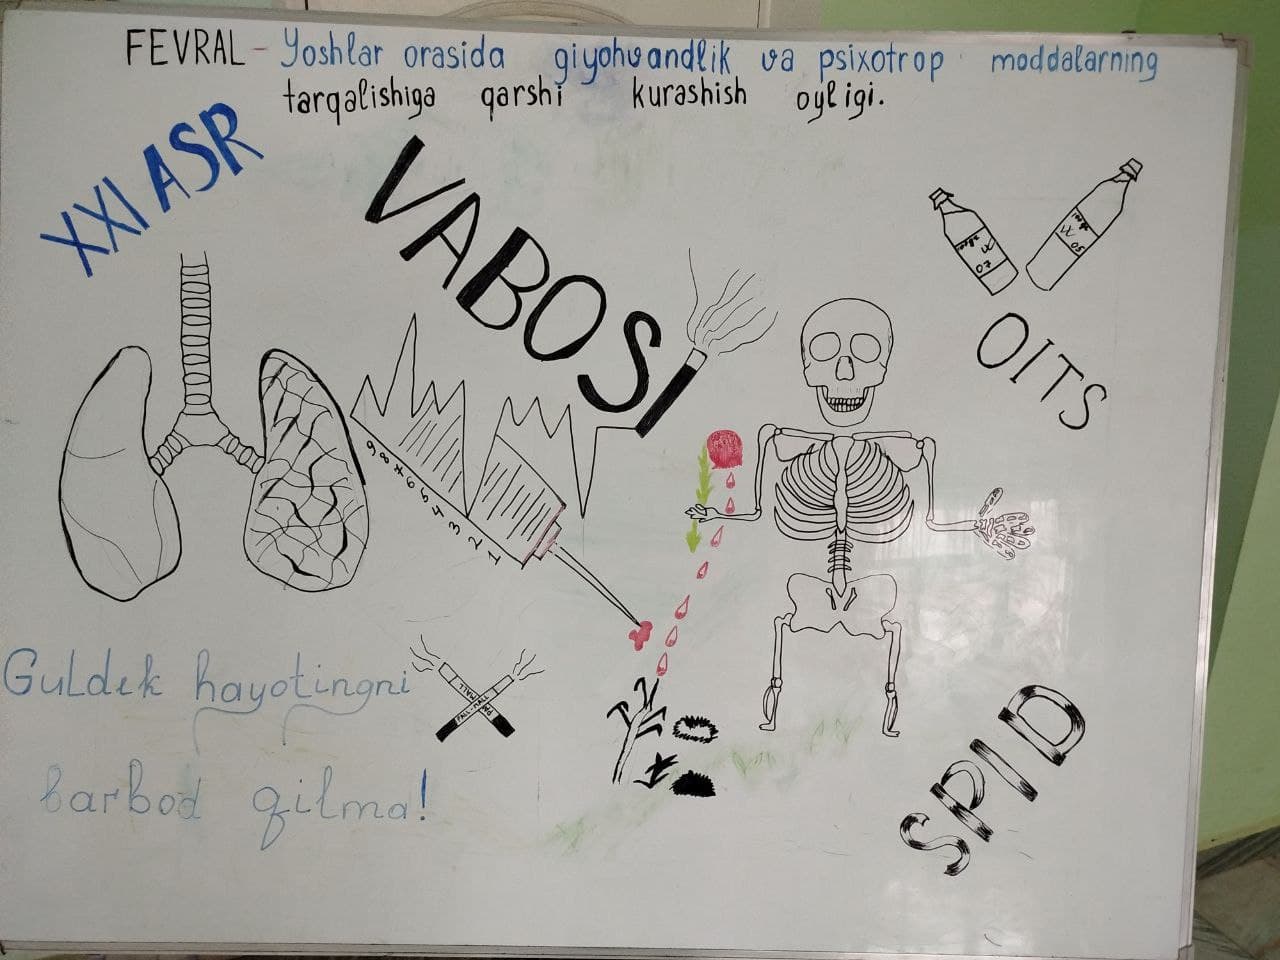 FEVRAL - Yoshlar orasida giyohvandlik va psixotrop moddalarning
tarqalishiga qarshi kurashish oyligi.
XXI ASR
VABOSI
OITS
0.7
05
9 8 7 6 5 4 3 2 1
Guldek hayotingni
barbod qilma!
PALL-MALL
SPID